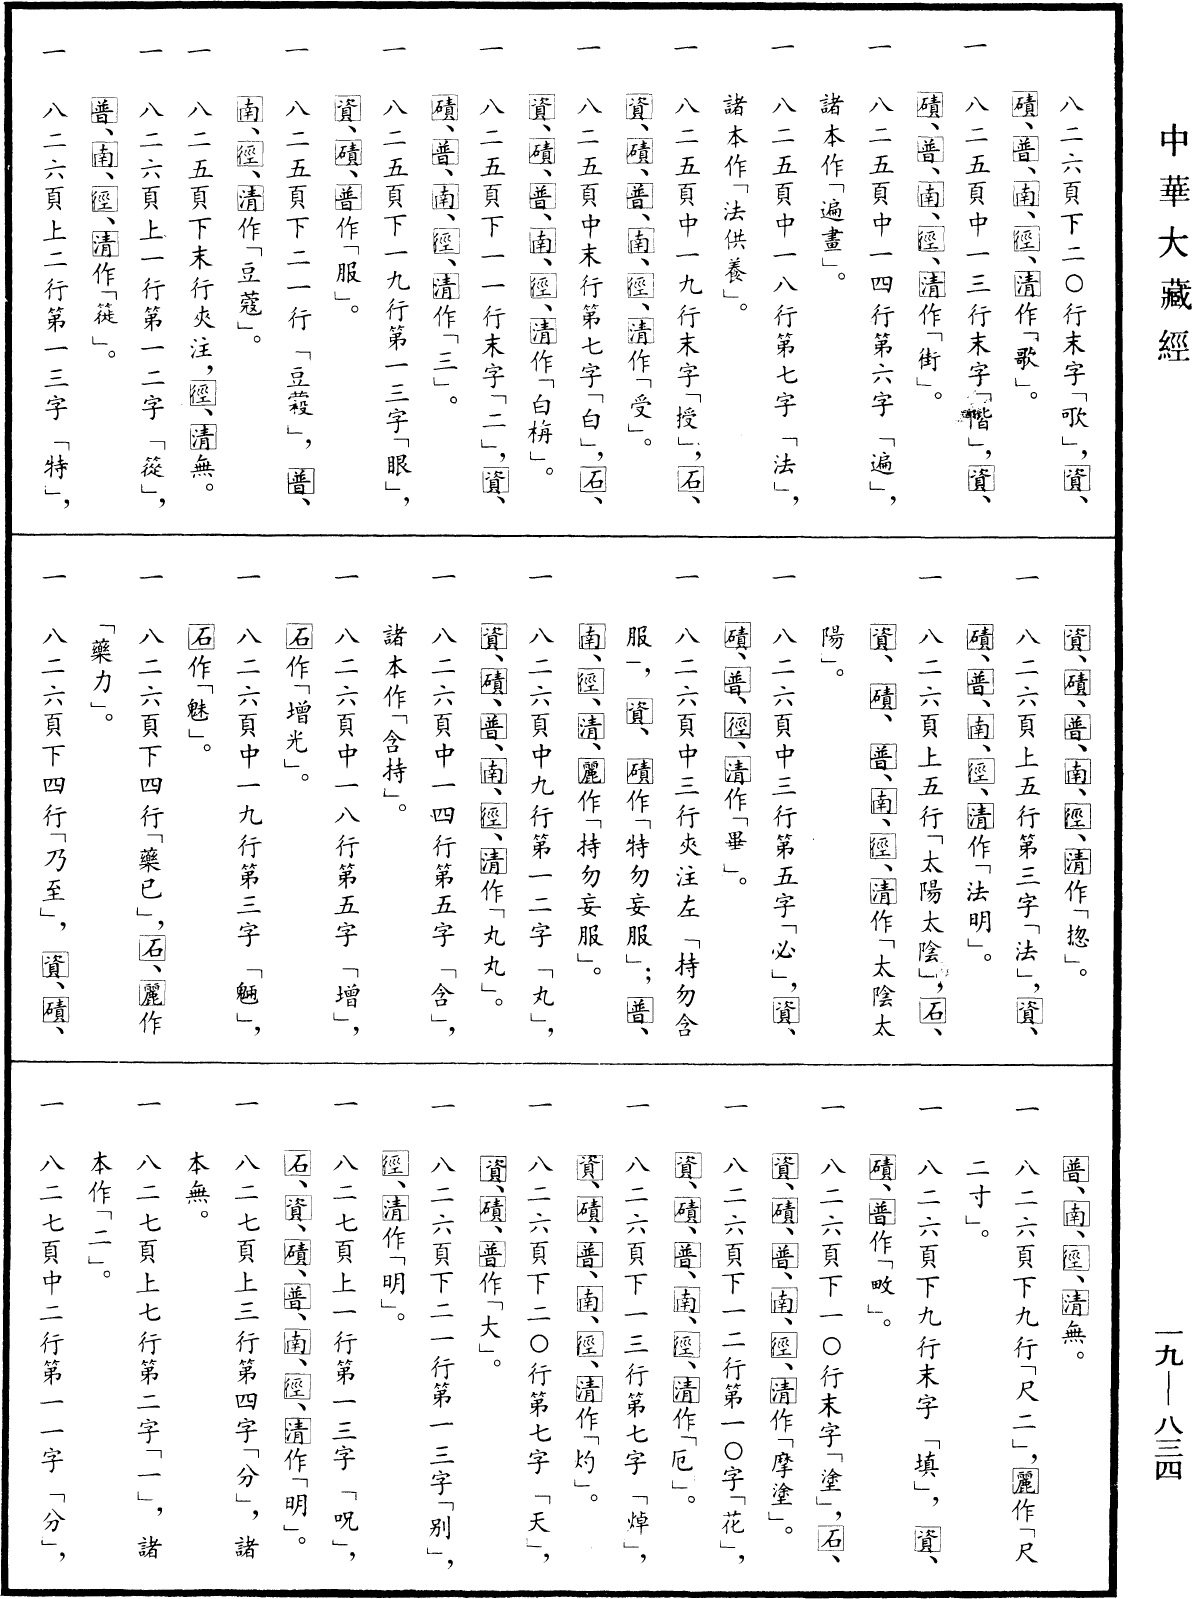 中華大藏經
八二六頁下二〇行末字「㰤」，資、
磧、普、南、徑、清作「歌」。
一 八二五頁中一三行末字「偕」，資、
磧、普、南、徑、清作「街」。
一 八二五頁中一四行第六字「遍」，
諸本作「遍畫」。
一 八二五頁中一八行第七字「法」，
諸本作「法供養」。
一 八二五頁中一九行末字「授」，石、
資、磧、普、南、徑、清作「受」。
一 八二五頁中末行第七字「白」，石、
資、磧、普、南、徑、清作「白栴」。
一 八二五頁下一一行末字「二」，資、
磧、普、南、徑、清作「三」。
一 八二五頁下一九行第一三字「眼」，
資、磧、普作「服」。
一 八二五頁下二一行「豆䓻」，普、
南、徑、清作「豆蔻」。
一 八二五頁下末行夾注，徑、清無。
一 八二六頁上一行第一二字「蓯」，
普、南、徑、清作「簁」。
一 八二六頁上二行第一三字「特」，
資、磧、普、南、徑、清作「揔」。
一 八二六頁上五行第三字「法」，資、
磧、普、南、徑、清作「法明」。
一 八二六頁上五行「太陽太陰」，石、
資、磧、普、南、徑、清作「太陰太
陽」。
一 八二六頁中三行第五字「必」，資、
磧、普、徑、清作「畢」。
一 八二六頁中三行夾注左「持勿含
服」，資、磧作「特勿妄服」；普、
南、徑、清、麗作「持勿妄服」。
一 八二六頁中九行第一二字「丸」，
資、磧、普、南、徑、清作「丸丸」。
一 八二六頁中一四行第五字「含」，
諸本作「含持」。
一 八二六頁中一八行第五字「增」，
石作「增光」。
一 八二六頁中一九行第三字「魎」，
石作「魅」。
一 八二六頁下四行「藥已」，石、麗作
「藥力」。
一 八二六頁下四行「乃至」，資、磧、
普、南、徑、清無。
一 八二六頁下九行「尺二」，麗作「尺
二寸」。
一 八二六頁下九行末字「填」，資、
磧、普作「畋」。
一 八二六頁下一〇行末字「塗」，石、
資、磧、普、南、徑、清作「摩塗」。
一 八二六頁下一二行第一〇字「花」，
資、磧、普、南、徑、清作「卮」。
一 八二六頁下一三行第七字「焯」，
資、磧、普、南、徑、清作「灼」。
一 八二六頁下二〇行第七字「天」，
資、磧、普作「大」。
一 八二六頁下二一行第一三字「别」，
徑、清作「明」。
一 八二七頁上一行第一三字「呪」，
石、資、磧、普、南、徑、清作「明」。
一 八二七頁上三行第四字「分」，諸
本無。
一 八二七頁上七行第二字「一」，諸
本作「二」。
一 八二七頁中二行第一一字「分」，
一九—八三四